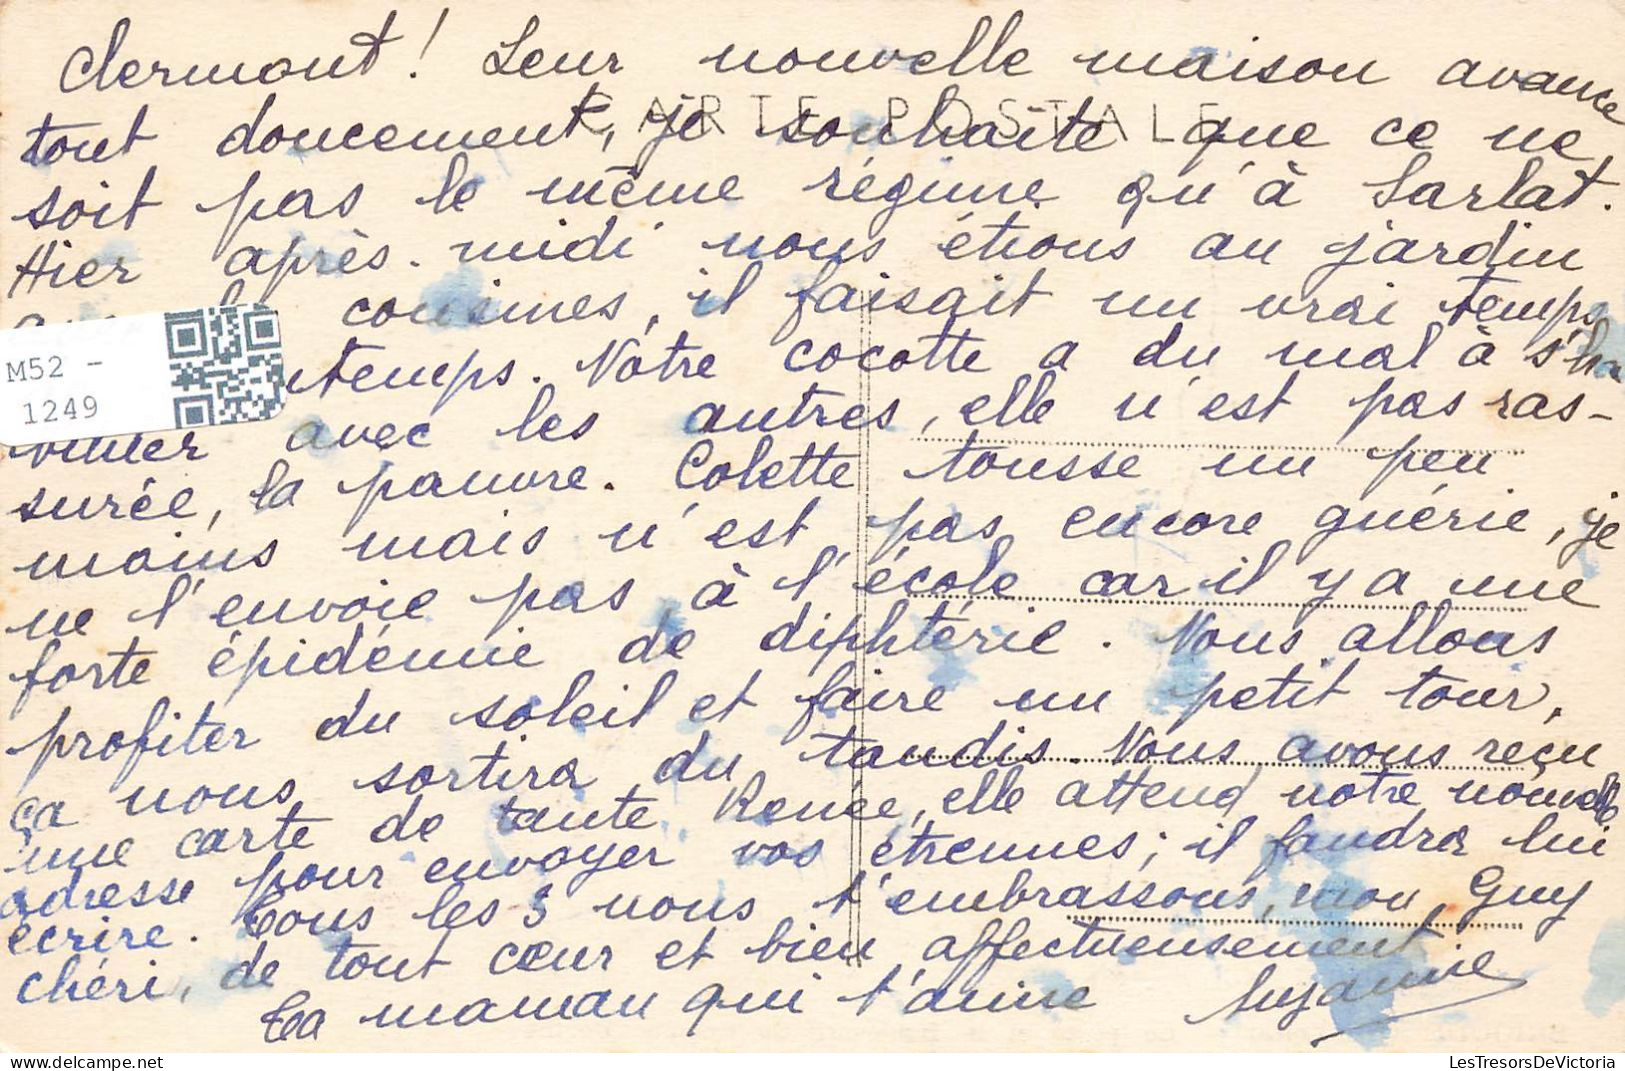 Clermont ! Leur nouvelle maison avance
CARTE POSTALE
tout doucement, je souhaite que ce ne
soit pas le même régime qu'à Sarlat.
Hier après-midi nous étions au jardin
cousines, il faisait un vrai temps
temps. Notre cocotte a du mal à s'ha
M52 -
1249
avec les autres, elle n'est pas ras-
surée, la pauvre. Colette tousse un peu
moins mais n'est pas encore guérie, je
ne l'envoie pas à l'école car il y a une
forte épidémie de diphtérie. Nous allons
profiter du soleil et faire un petit tour,
ça nous sortira du taudis. Nous avons reçu
une carte de tante Renée, elle attend notre nouvelle
adresse pour envoyer vos étrennes ; il faudra lui
écrire. Tous les 3 nous t'embrassons, mon Guy
chéri, de tout cœur et bien affectueusement
Ta maman qui t'aime Suzanne
LesTresorsDeVictoria